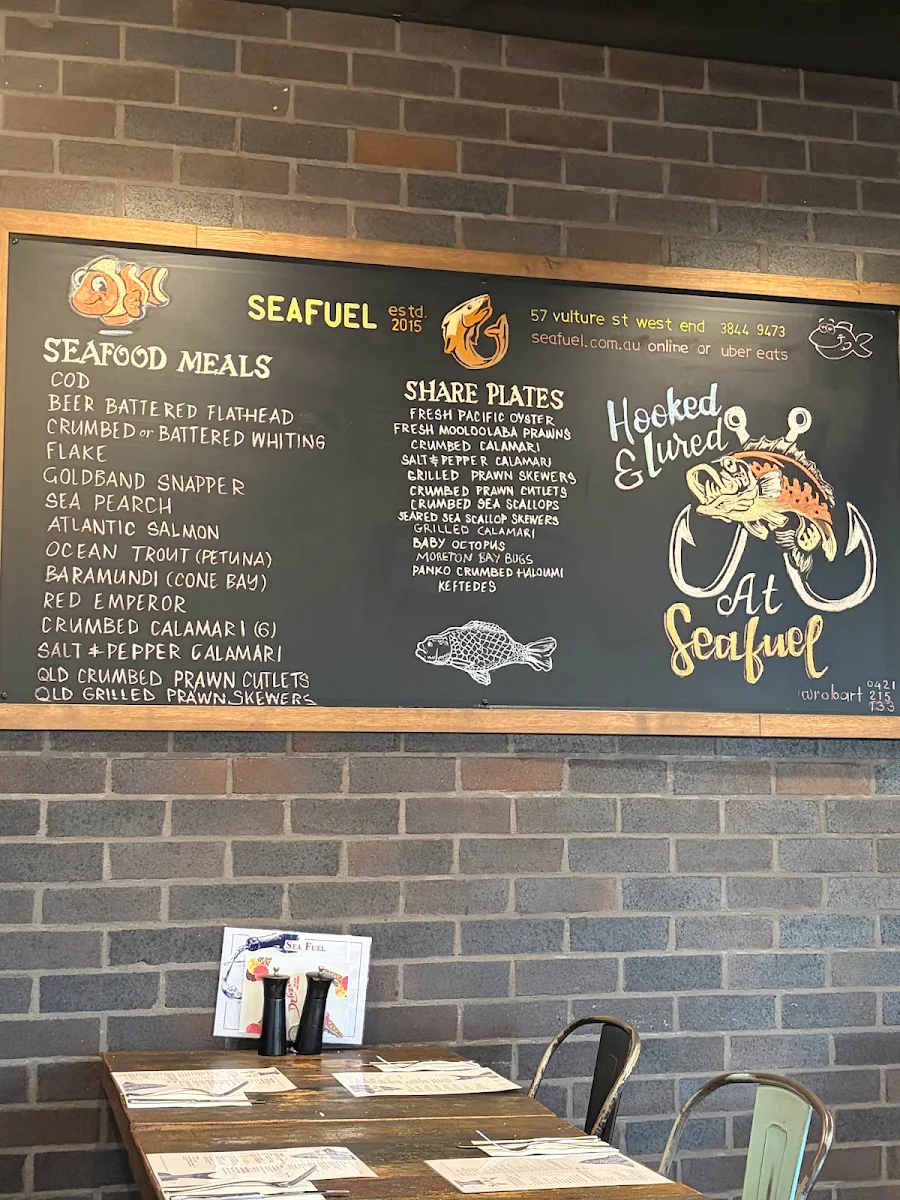 SEAFUEL estd. 2015
57 vulture st west end 3844 9473
seafuel.com.au online or uber eats
SEAFOOD MEALS
COD
BEER BATTERED FLATHEAD
CRUMBED or BATTERED WHITING
FLAKE
GOLDBAND SNAPPER
SEA PEARCH
ATLANTIC SALMON
OCEAN TROUT (PETUNA)
BARAMUNDI (CONE BAY)
RED EMPEROR
CRUMBED CALAMARI (6)
SALT & PEPPER CALAMARI
QLD CRUMBED PRAWN CUTLETS
QLD GRILLED PRAWN SKEWERS
SHARE PLATES
FRESH PACIFIC OYSTER
FRESH MOOLOOLABA PRAWNS
CRUMBED CALAMARI
SALT & PEPPER CALAMARI
GRILLED PRAWN SKEWERS
CRUMBED PRAWN CUTLETS
CRUMBED SEA SCALLOPS
SEARED SEA SCALLOP SKEWERS
GRILLED CALAMARI
BABY OCTOPUS
MORETON BAY BUGS
PANKO CRUMBED HALOUMI
KEFTEDES
Hooked
& lured
At
Seafuel
@robart 0421
215
133
SEA FUEL